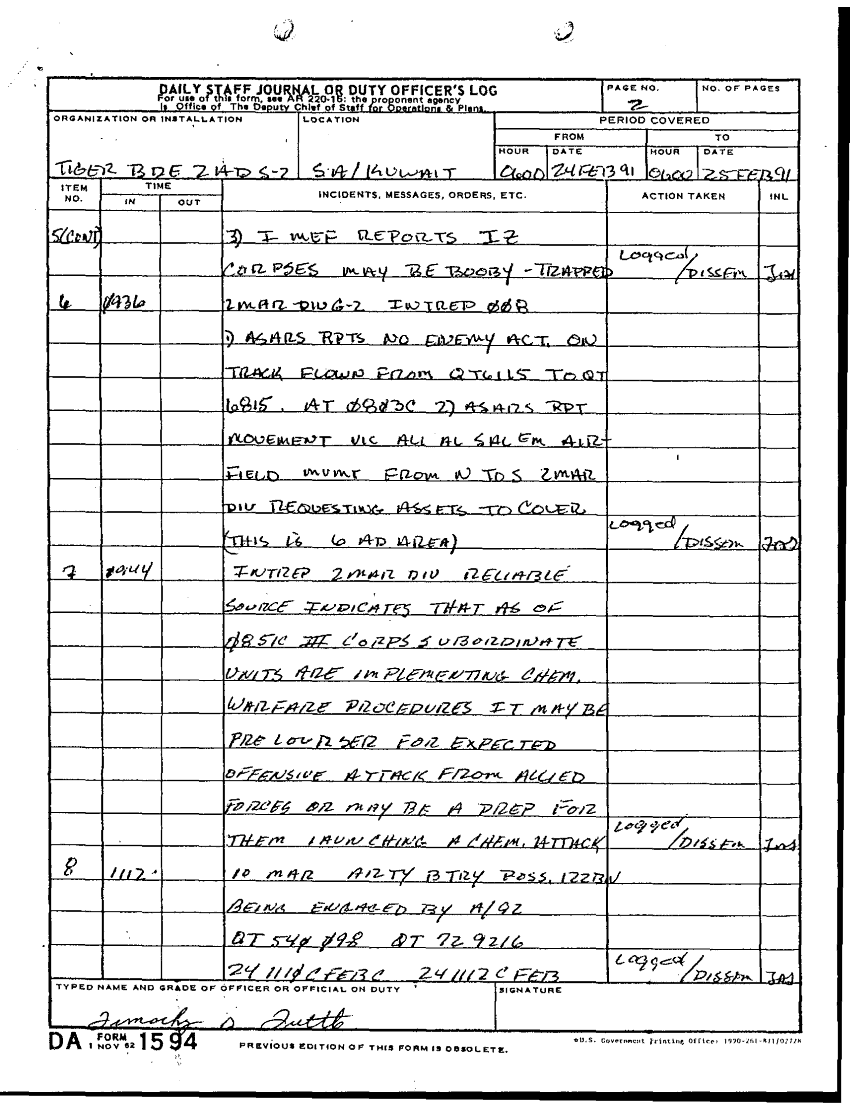 DAILY STAFF JOURNAL OR DUTY OFFICER'S LOG
For use of this form, see AR 220-15; the proponent agency
is Office of The Deputy Chief of Staff for Operations & Plans.
PAGE NO.
2
NO. OF PAGES
ORGANIZATION OR INSTALLATION
TIGER BDE 2AD S-2
LOCATION
SA/KUWAIT
PERIOD COVERED
FROM
TO
HOUR DATE HOUR DATE
0600 24FEB91 0600 25FEB91
ITEM NO. TIME IN OUT INCIDENTS, MESSAGES, ORDERS, ETC. ACTION TAKEN INL
5(CONT) 3) I MEF REPORTS IZ
CORPSES MAY BE BOOBY-TRAPPED Logged/DISSEM
6 0936 2MAR DIV G-2 INTREP 008
1) ASARS RPTS NO ENEMY ACT. ON
TRACK FLOWN FROM QT6115 TO QT
6815. AT 0803C 2) ASARS RPT
MOVEMENT VIC ALL AL SALEM AIR-
FIELD MVMT FROM N TO S 2MAR
DIV REQUESTING ASSETS TO COVER
(THIS IS 6 AD AREA) Logged/DISSEM
7 0944 INTREP 2MAR DIV RELIABLE
SOURCE INDICATES THAT AS OF
0851C III CORPS SUBORDINATE
UNITS ARE IMPLEMENTING CHEM.
WARFARE PROCEDURES IT MAY BE
FOR EXPECTED
OFFENSIVE ATTACK FROM ALLIED
FORCES OR MAY BE A PREP FOR
THEM LAUNCHING A CHEM. ATTACK Logged/DISSEM
8 1112 10 MAR ARTY BTRY POSS. 122BN
BEING ENGAGED BY A/92
QT 540 098 QT 72 9216
24 1110 C FEB C 24 1112 C FEB Logged/DISSEM
TYPED NAME AND GRADE OF OFFICER OR OFFICIAL ON DUTY
SIGNATURE
Timothy D Tuttle
DA FORM 1 NOV 62 1594
PREVIOUS EDITION OF THIS FORM IS OBSOLETE.
*U.S. Government Printing Office: 1990-261-871/02728